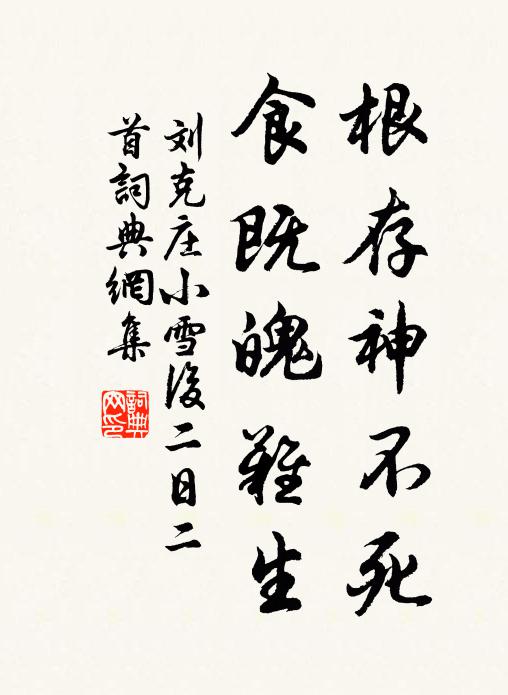 根存神不死
食既魄難生
刘克庄小雪後二日二
首詞典網集
詞典网印